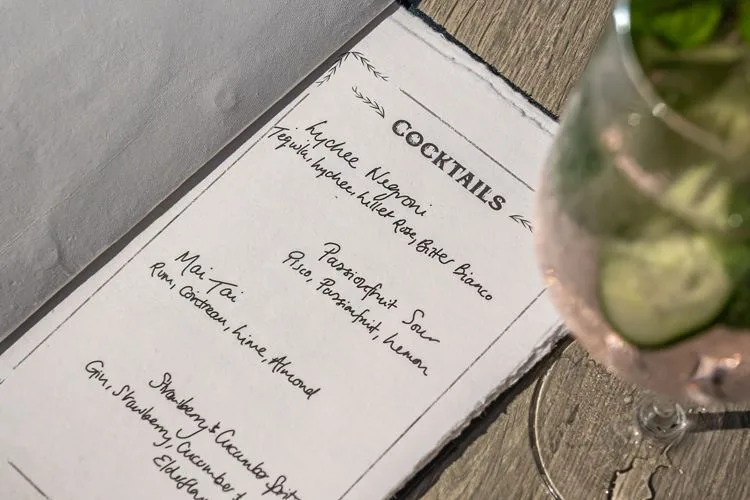 COCKTAILS
Lychee Negroni
Tequila, Lychee, Lillet Rose, Bitter Bianco
Passionfruit Sour
Pisco, Passionfruit, Lemon
Mai Tai
Rum, Cointreau, Lime, Almond
Strawberry & Cucumber Spritz
Gin, Strawberry, Cucumber &